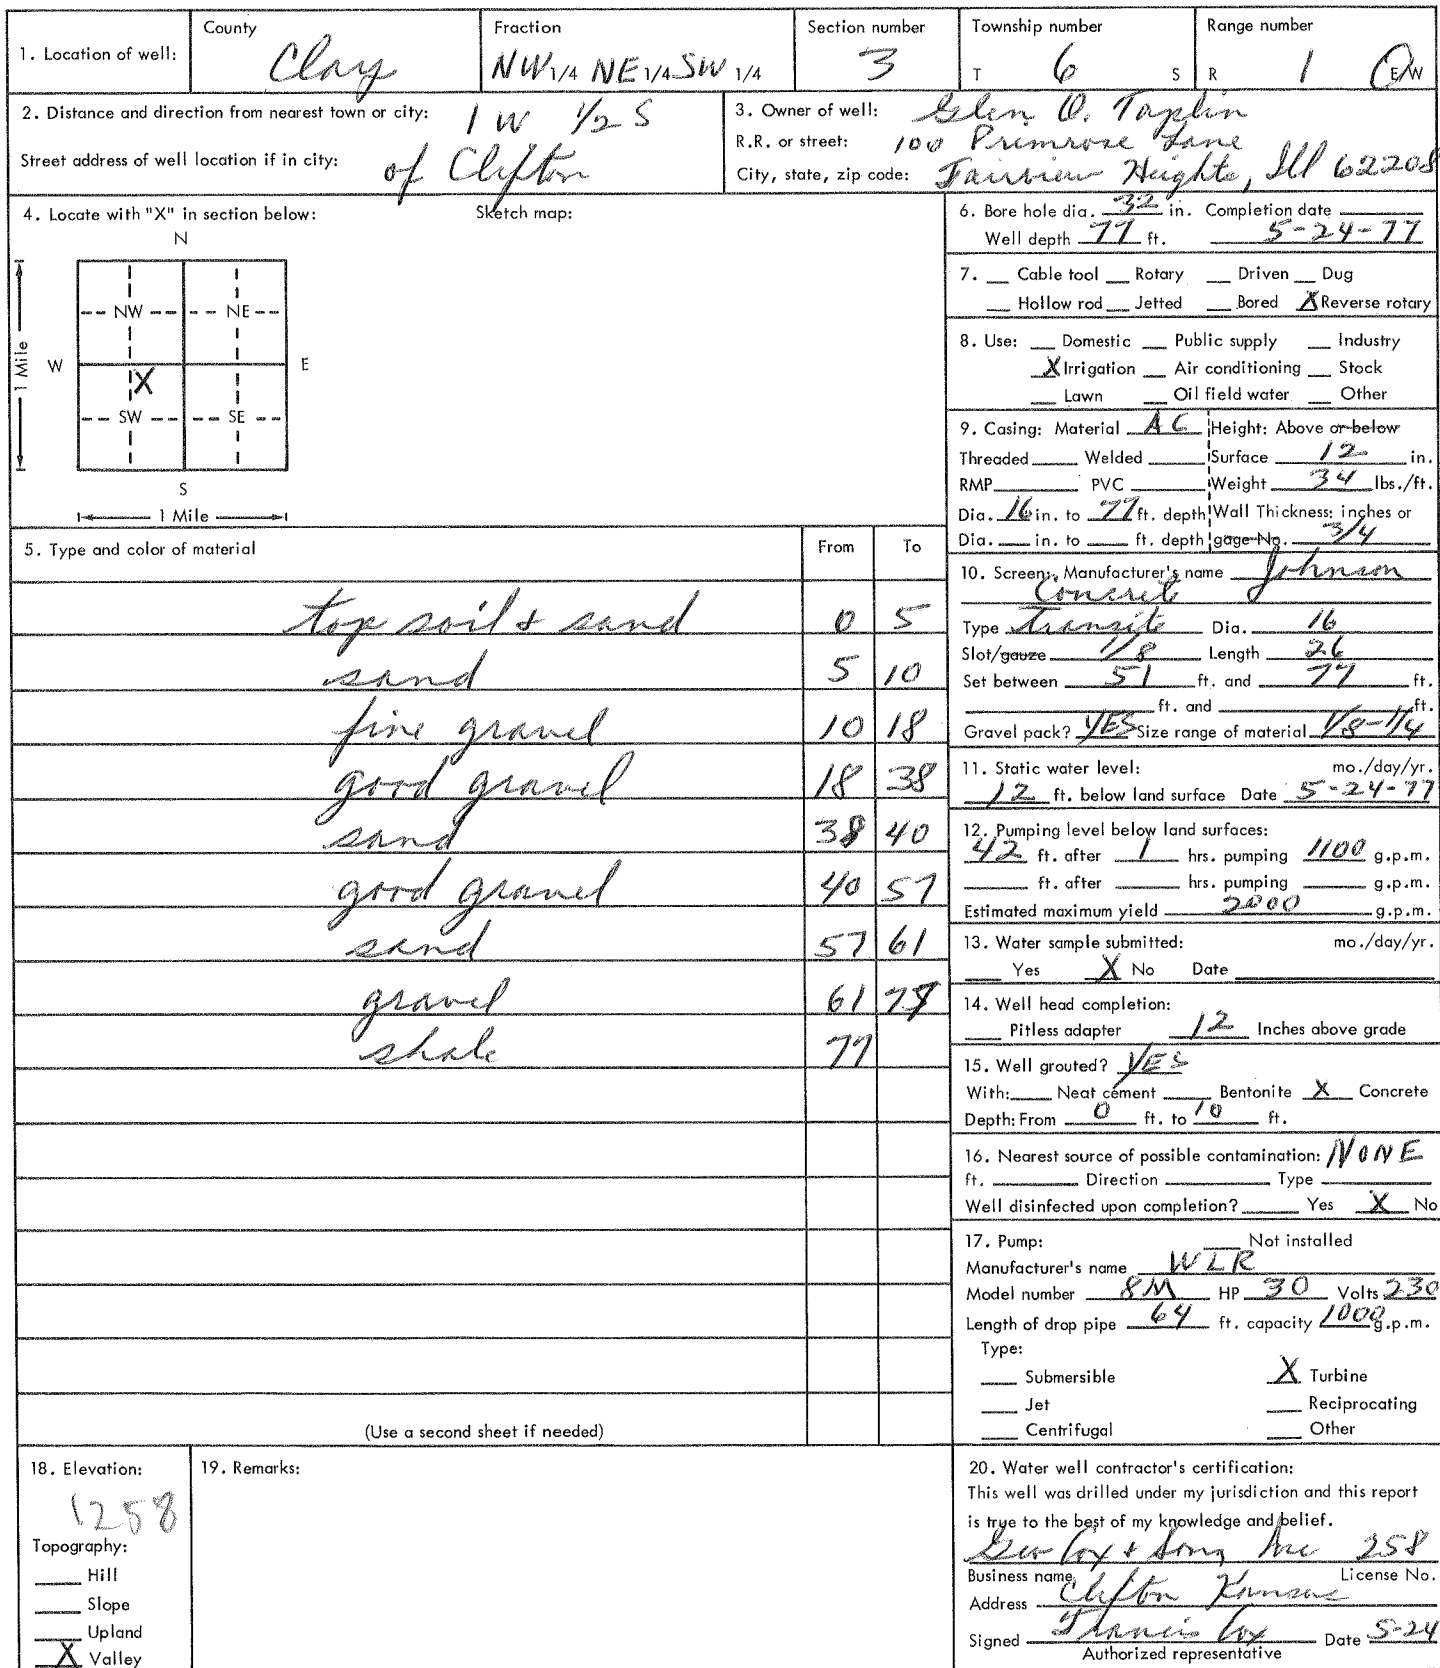 1. Location of well: County Clay Fraction NW 1/4 NE 1/4 SW 1/4 Section number 3 Township number T 6 S Range number R 1 E/W
2. Distance and direction from nearest town or city: 1 W 1/2 S
Street address of well location if in city: of Clifton
3. Owner of well: Glen O. Taplin
R.R. or street: 100 Primrose Lane
City, state, zip code: Fairview Heights, Ill 62208
4. Locate with "X" in section below: Sketch map:
N
NW NE
W X E
SW SE
S
1 Mile
1 Mile
5. Type and color of material From To
top soil & sand 0 5
sand 5 10
fine gravel 10 18
good gravel 18 38
sand 38 40
good gravel 40 57
sand 57 61
gravel 61 77
shale 77
(Use a second sheet if needed)
6. Bore hole dia. 32 in. Completion date
Well depth 77 ft. 5-24-77
7. Cable tool Rotary Driven Dug
Hollow rod Jetted Bored X Reverse rotary
8. Use: Domestic Public supply Industry
X Irrigation Air conditioning Stock
Lawn Oil field water Other
9. Casing: Material AC Height: Above or below
Threaded Welded Surface 12 in.
RMP PVC Weight 34 lbs./ft.
Dia. 16 in. to 77 ft. depth Wall Thickness: inches or
Dia. in. to ft. depth gage No. 3/4
10. Screen: Manufacturer's name Johnson
Concrete
Type transite Dia. 16
Slot/gauze 1/8 Length 26
Set between 51 ft. and 77 ft.
ft. and ft.
Gravel pack? YES Size range of material 1/8-1/4
11. Static water level: mo./day/yr.
12 ft. below land surface Date 5-24-77
12. Pumping level below land surfaces:
42 ft. after 1 hrs. pumping 1100 g.p.m.
ft. after hrs. pumping g.p.m.
Estimated maximum yield 2000 g.p.m.
13. Water sample submitted: mo./day/yr.
Yes X No Date
14. Well head completion:
Pitless adapter 12 Inches above grade
15. Well grouted? YES
With: Neat cement Bentonite X Concrete
Depth: From 0 ft. to 10 ft.
16. Nearest source of possible contamination: NONE
ft. Direction Type
Well disinfected upon completion? Yes X No
17. Pump: Not installed
Manufacturer's name WLR
Model number 8M HP 30 Volts 230
Length of drop pipe 64 ft. capacity 1000 g.p.m.
Type:
Submersible X Turbine
Jet Reciprocating
Centrifugal Other
18. Elevation:
1258
Topography:
Hill
Slope
Upland
X Valley
19. Remarks:
20. Water well contractor's certification:
This well was drilled under my jurisdiction and this report
is true to the best of my knowledge and belief.
Geo Cox & Sons Inc 258
Business name License No.
Address Clifton Kansas
Signed Francis Cox Date 5-24
Authorized representative